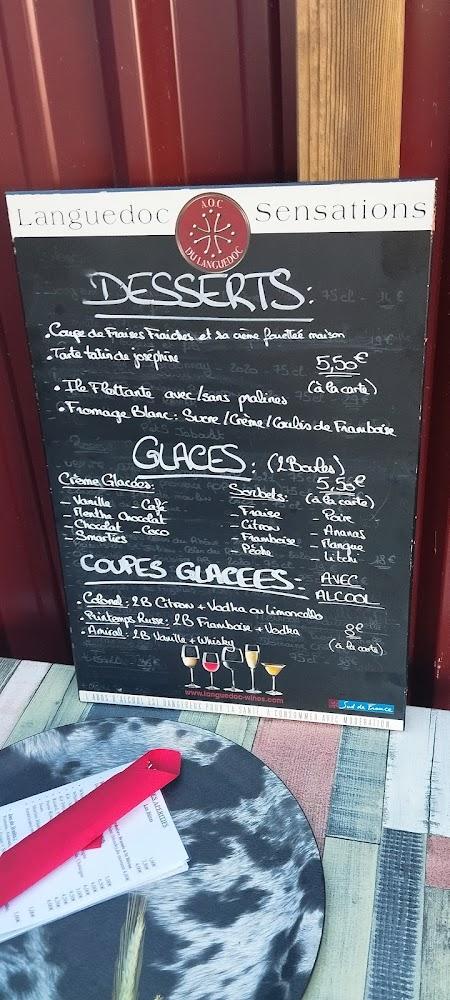 Languedoc Sensations
A.O.C
DU LANGUEDOC
DESSERTS:
• Coupe de Fraises Fraîches et sa crème fouettée maison
• Tarte tatin de josephine
5,50€
(à la carte)
• Ile Flottante avec/sans pralines
• Fromage Blanc: Sucre/Crème/Coulis de Framboise
GLACES: (2 Boules)
Crème Glacées:
Sorbets:
5,50€
(à la carte)
- Vanille - Café
- Menthe Chocolat
- Chocolat - Coco
- Smarties
- Fraise - Poire
- Citron - Ananas
- Framboise - Mangue
- Pêche - Litchi
COUPES GLACEES - AVEC ALCOOL
• Colonel: 2B Citron + Vodka ou limoncello
• Printemps Russe: 2B Framboise + Vodka
• Amiral: 2B Vanille + Whisky
8€
(à la carte)
www.languedoc-wines.com
Sud de France
L'ABUS D'ALCOOL EST DANGEREUX POUR LA SANTÉ. A CONSOMMER AVEC MODÉRATION